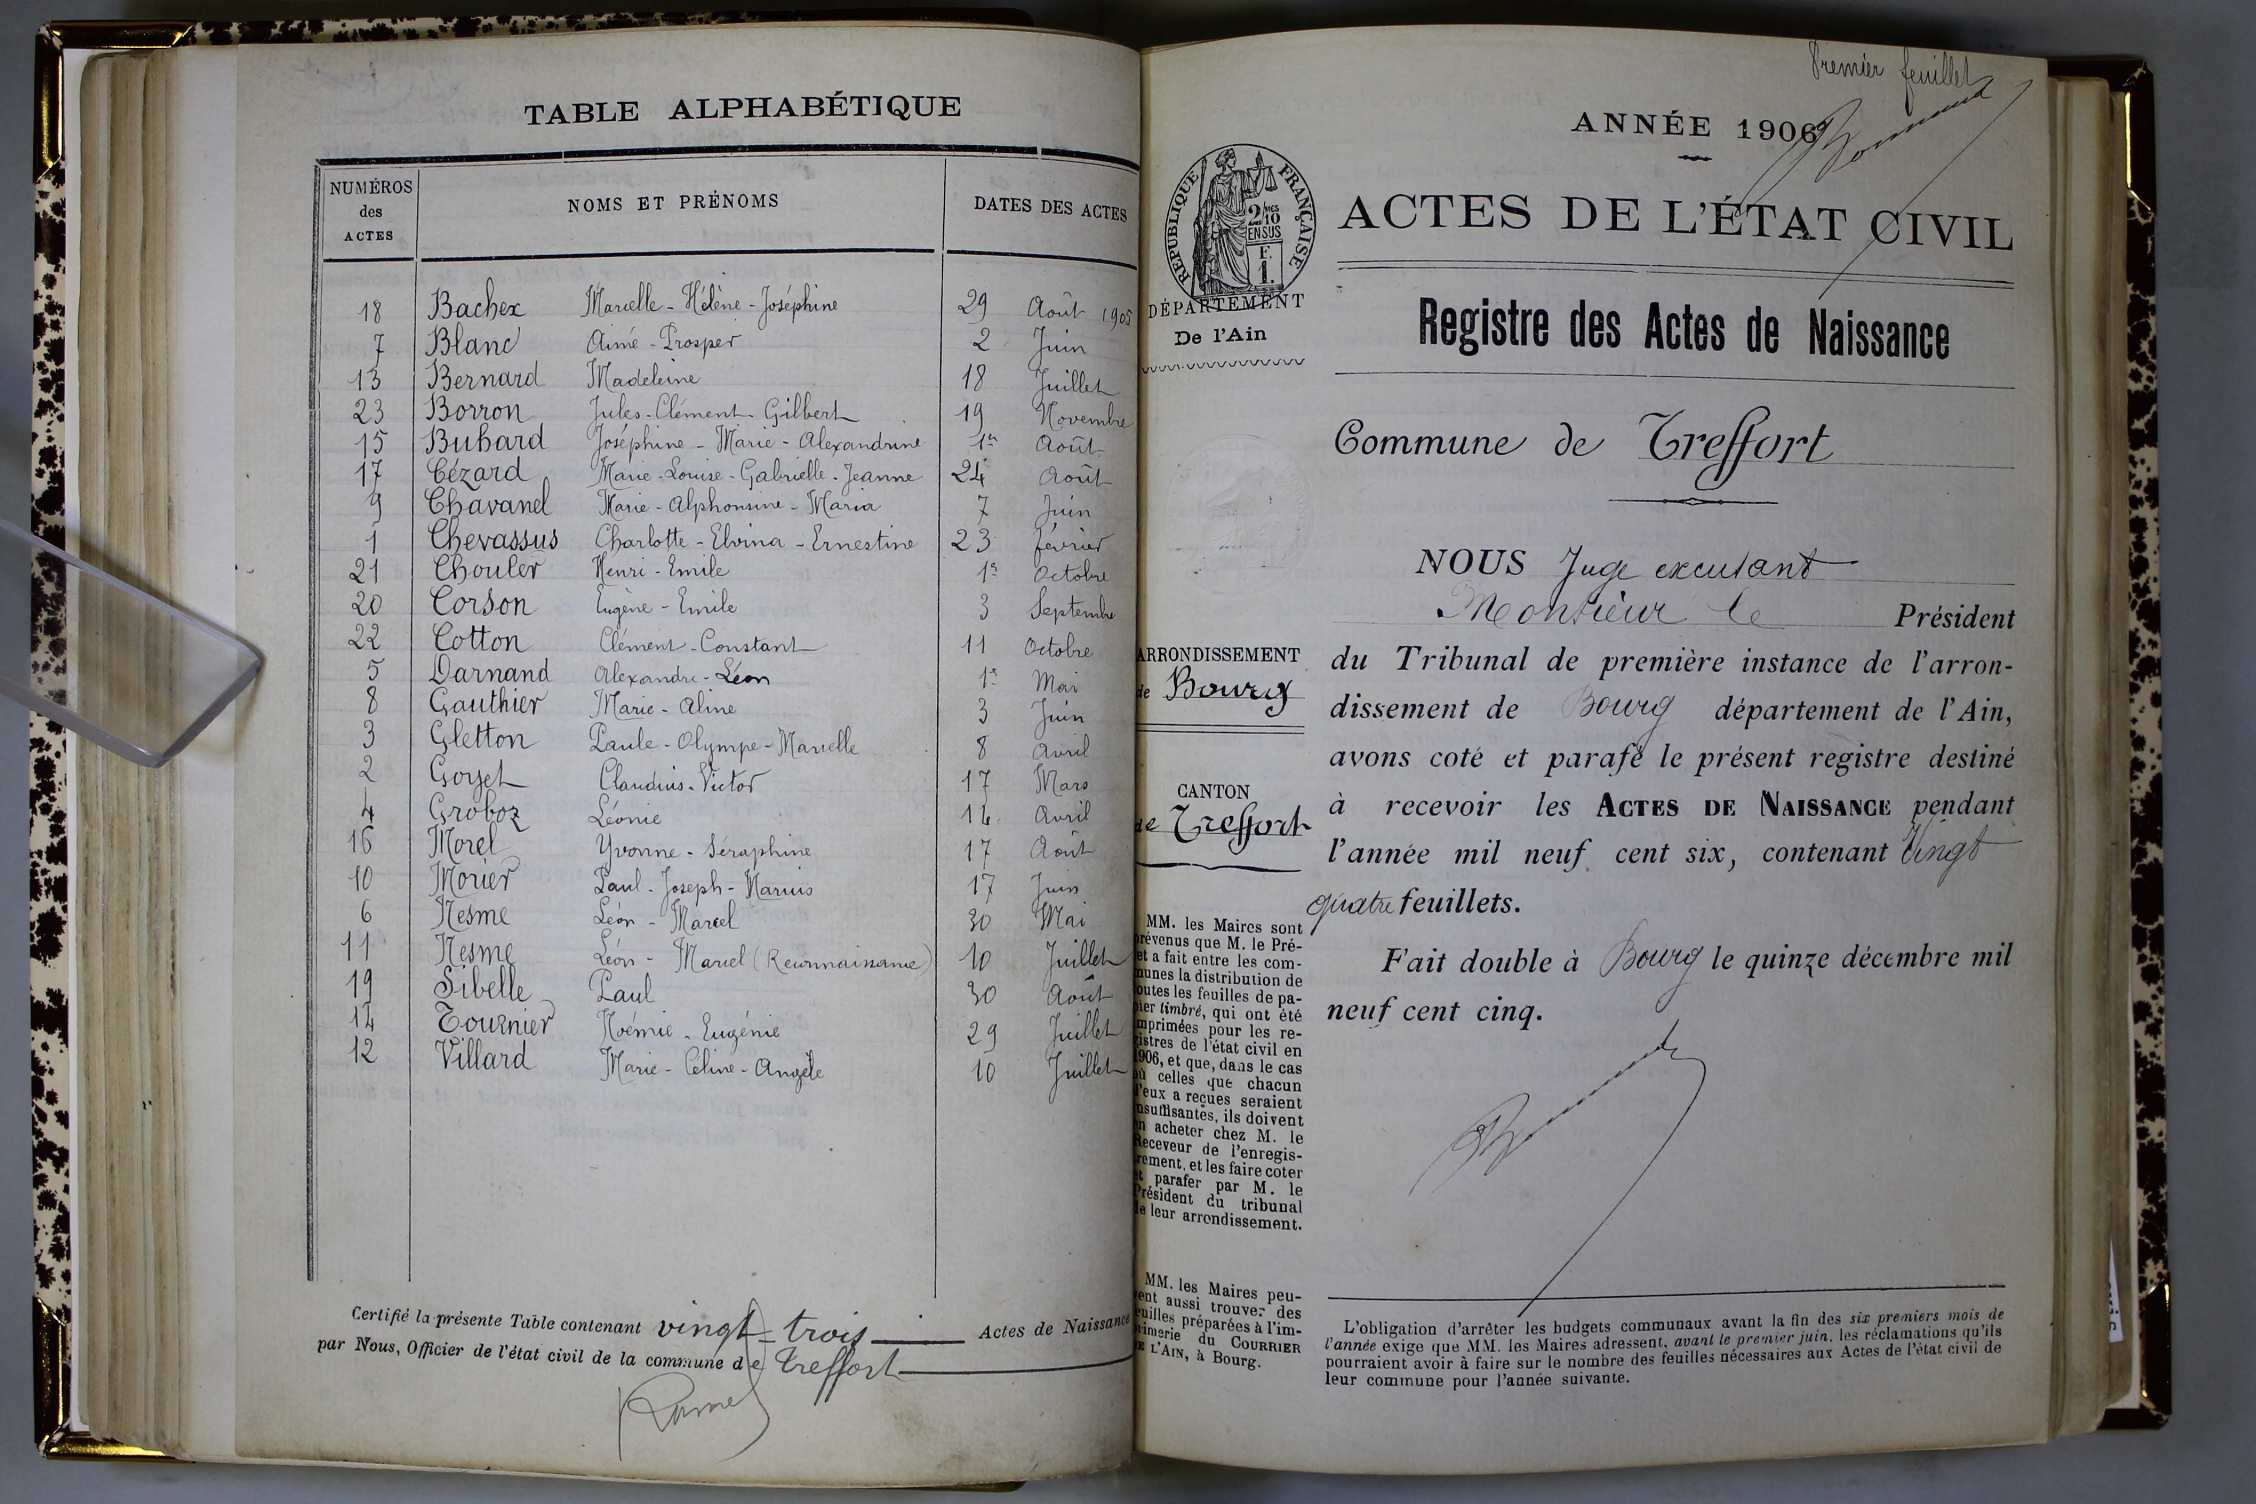 TABLE ALPHABÉTIQUE
NUMÉROS des ACTES NOMS ET PRÉNOMS DATES DES ACTES
18 Bachex Marcelle - Hélène - Joséphine 29 Août 1905
7 Blanc Aimé - Prosper 2 Juin
13 Bernard Madeleine 18 Juillet
23 Borron Jules - Clément - Gilbert 19 Novembre
15 Buhard Joséphine - Marie - Alexandrine 1er Août
17 Cézard Marie - Louise - Gabrielle - Jeanne 24 Août
9 Chavanel Marie - Alphonsine - Maria 7 Juin
1 Chevassus Charlotte - Elvina - Ernestine 23 février
21 Chouler Henri - Emile 1er Octobre
20 Corson Eugène - Emile 3 Septembre
22 Cotton Clément - Constant 11 Octobre
5 Darnand Alexandre - Léon 1er Mai
8 Gauthier Marie - Aline 3 Juin
3 Gletton Paule - Olympe - Marcelle 8 Avril
2 Goyet Claudius - Victor 17 Mars
4 Groboz Léonie 14 Avril
16 Morel Yvonne - Séraphine 17 Août
10 Morier Paul - Joseph - Marius 17 Juin
6 Nesme Léon - Marcel 30 Mai
11 Nesme Léon - Marcel (Reconnaissance) 10 Juillet
19 Sibelle Paul 30 Août
14 Tournier Noémie - Eugénie 29 Juillet
12 Villard Marie - Céline - Angèle 10 Juillet
Certifié la présente Table contenant vingt-trois Actes de Naissance
par Nous, Officier de l'état civil de la commune de Treffort
Premier feuillet
ANNÉE 1906
RÉPUBLIQUE FRANÇAISE
2/10MES
EN SUS
F.
1.
ACTES DE L'ÉTAT CIVIL
DÉPARTEMENT
De l'Ain
Registre des Actes de Naissance
Commune de Treffort
NOUS Juge excusant
Monsieur le Président
du Tribunal de première instance de l'arron-
dissement de Bourg département de l'Ain,
avons coté et parafé le présent registre destiné
à recevoir les ACTES DE NAISSANCE pendant
l'année mil neuf cent six, contenant Vingt
quatre feuillets.
Fait double à Bourg le quinze décembre mil
neuf cent cinq.
ARRONDISSEMENT
de Bourg
CANTON
de Treffort
MM. les Maires sont
prévenus que M. le Pré-
et a fait entre les com-
munes la distribution de
toutes les feuilles de pa-
pier timbré, qui ont été
imprimées pour les re-
gistres de l'état civil en
1906, et que, dans le cas
où celles que chacun
d'eux a reçues seraient
insuffisantes, ils doivent
en acheter chez M. le
Receveur de l'enregis-
trement, et les faire coter
et parafer par M. le
Président du tribunal
de leur arrondissement.
MM. les Maires peu-
vent aussi trouver des
feuilles préparées à l'im-
primerie du COURRIER
DE L'AIN, à Bourg.
L'obligation d'arrêter les budgets communaux avant la fin des six premiers mois de
l'année exige que MM. les Maires adressent, avant le premier juin, les réclamations qu'ils
pourraient avoir à faire sur le nombre des feuilles nécessaires aux Actes de l'état civil de
leur commune pour l'année suivante.